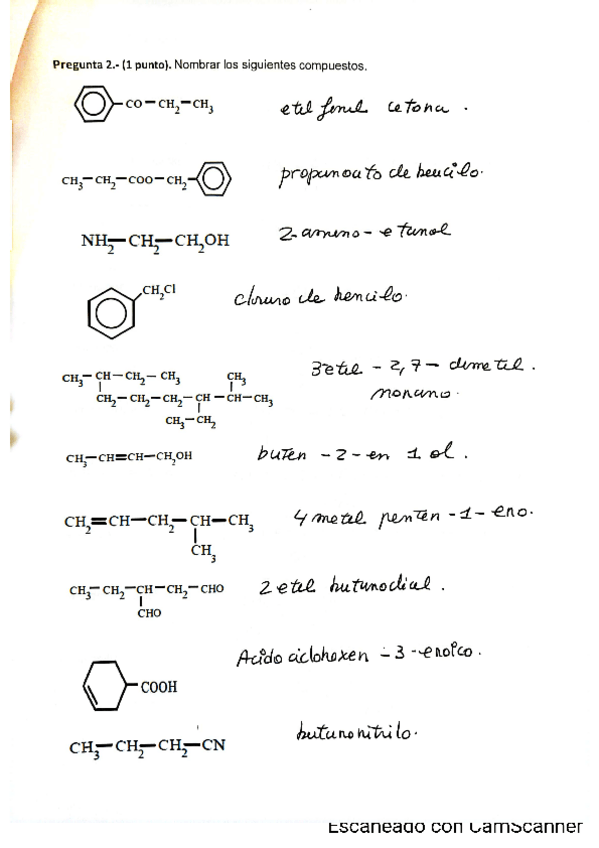 Pregunta 2.- (1 punto). Nombrar los siguientes compuestos.
CO—CH2—CH3 etil fenil cetona.
CH3—CH2—COO—CH2 propanoato de bencilo.
NH2—CH2—CH2OH 2-amino-etanol
CH2Cl
cloruro de bencilo.
CH3—CH—CH2—CH3 CH3 3etil-2,7-dimetil.
CH2—CH2—CH2—CH—CH—CH3 nonano.
CH3—CH2
CH3—CH=CH—CH2OH buten-2-en 1 ol.
CH2=CH—CH2—CH—CH3 4 metil penten-1-eno.
CH3
CH3—CH2—CH—CH2—CHO 2 etil butanodial.
CHO
Acido ciclohexen-3-enoico.
COOH
CH3—CH2—CH2—CN butanonitrilo.
Escaneado con CamScanner